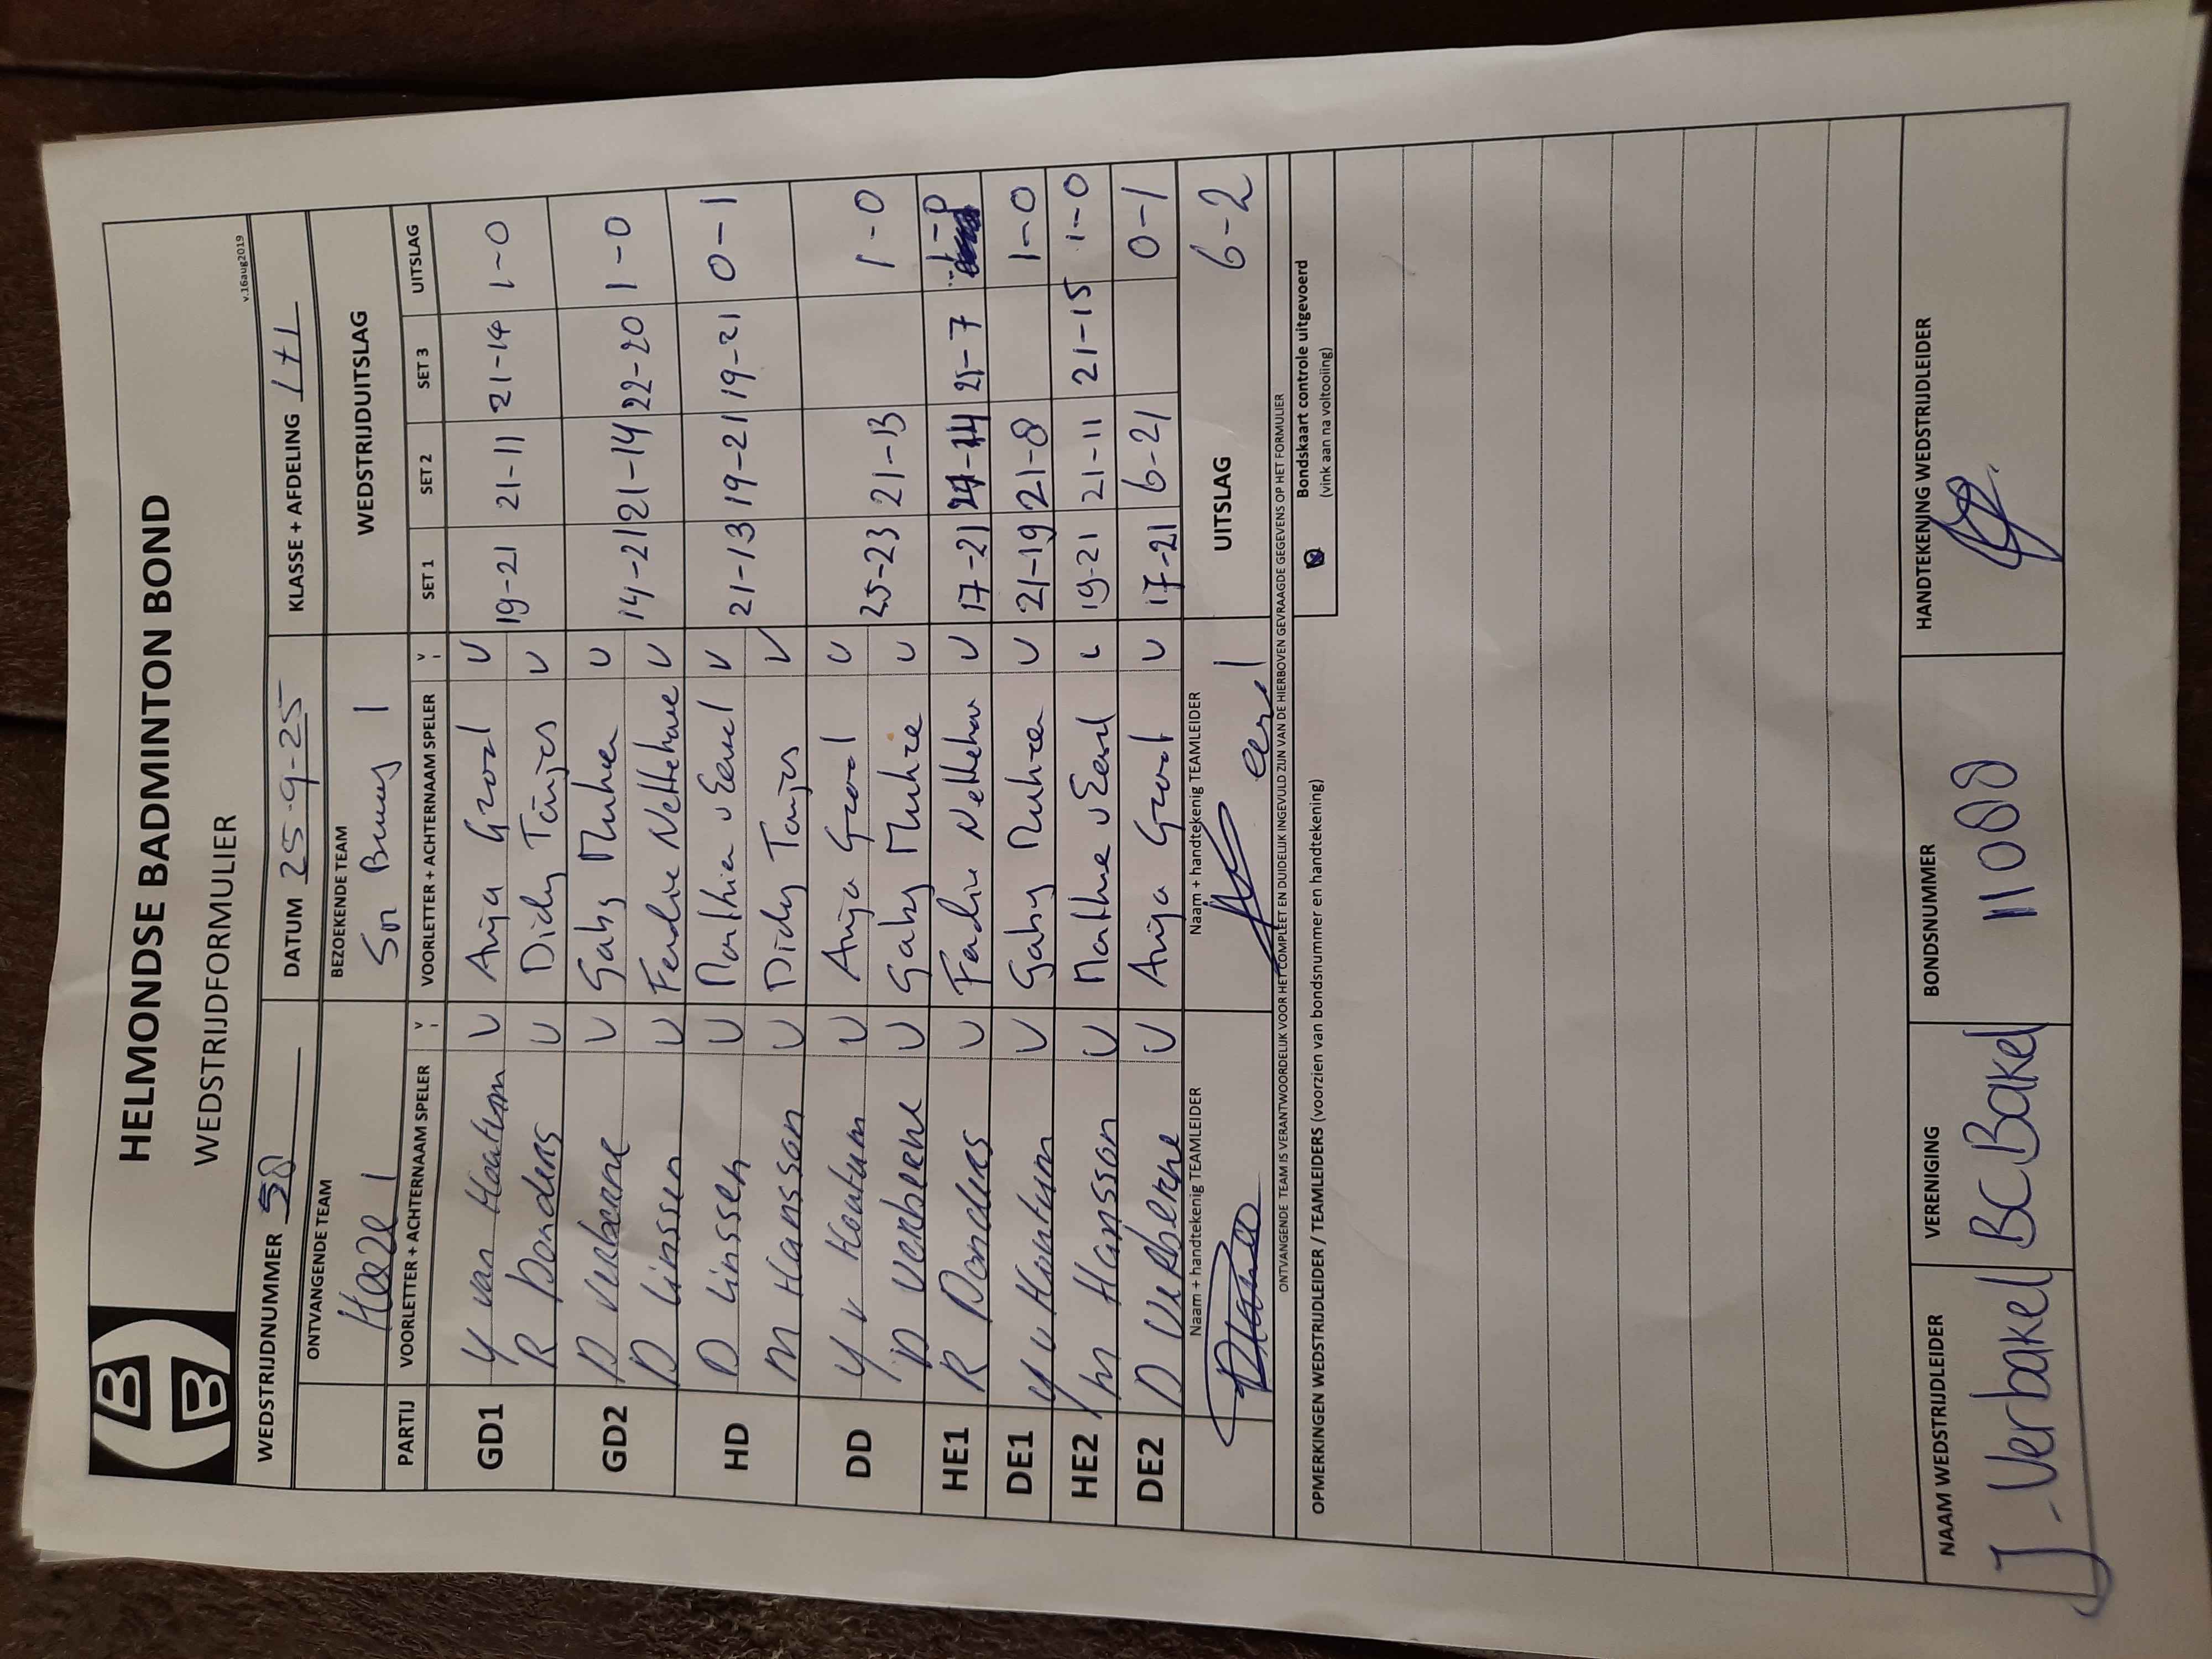 HELMONDSE BADMINTON BOND
WEDSTRIJDFORMULIER
v.16aug2019
WEDSTRIJDNUMMER 50 DATUM 25-9-25 KLASSE + AFDELING 1+1
ONTVANGENDE TEAM BEZOEKENDE TEAM WEDSTRIJDUITSLAG
Heeze 1 Son 1
PARTIJ VOORLETTER + ACHTERNAAM SPELER V VOORLETTER + ACHTERNAAM SPELER V SET 1 SET 2 SET 3 UITSLAG
GD1 Y van Houtum V Anja Groot V 19-21 21-11 21-14 1-0
R Donders V Dicky Tanjes V
GD2 D Verberne V Gaby V 14-21 21-14 22-20 1-0
D Linssen V V
HD D Linssen V v Eersel V 21-13 19-21 19-21 0-1
M Hanssen V Dicky Tanjes V
DD Y v Houtum V Anja Groot V 25-23 21-13 1-0
D Verberne V Gaby V
HE1 R Donders V V 17-21 21-14 21-7 1-0
DE1 Y v Houtum V Gaby V 21-19 21-8 1-0
HE2 M Hanssen V v Eersel V 19-21 21-11 21-15 1-0
DE2 D Verberne V Anja Groot V 17-21 6-21 0-1
Naam + handtekenig TEAMLEIDER Naam + handtekenig TEAMLEIDER UITSLAG 6-2
ONTVANGENDE TEAM IS VERANTWOORDELIJK VOOR HET COMPLEET EN DUIDELIJK INGEVULD ZIJN VAN DE HIERBOVEN GEVRAAGDE GEGEVENS OP HET FORMULIER
OPMERKINGEN WEDSTRIJDLEIDER / TEAMLEIDERS (voorzien van bondsnummer en handtekening)
Bondskaart controle uitgevoerd
(vink aan na voltooiing)
NAAM WEDSTRIJDLEIDER VERENIGING BONDSNUMMER HANDTEKENING WEDSTRIJDLEIDER
J. Verbakel BC Bakel 11000